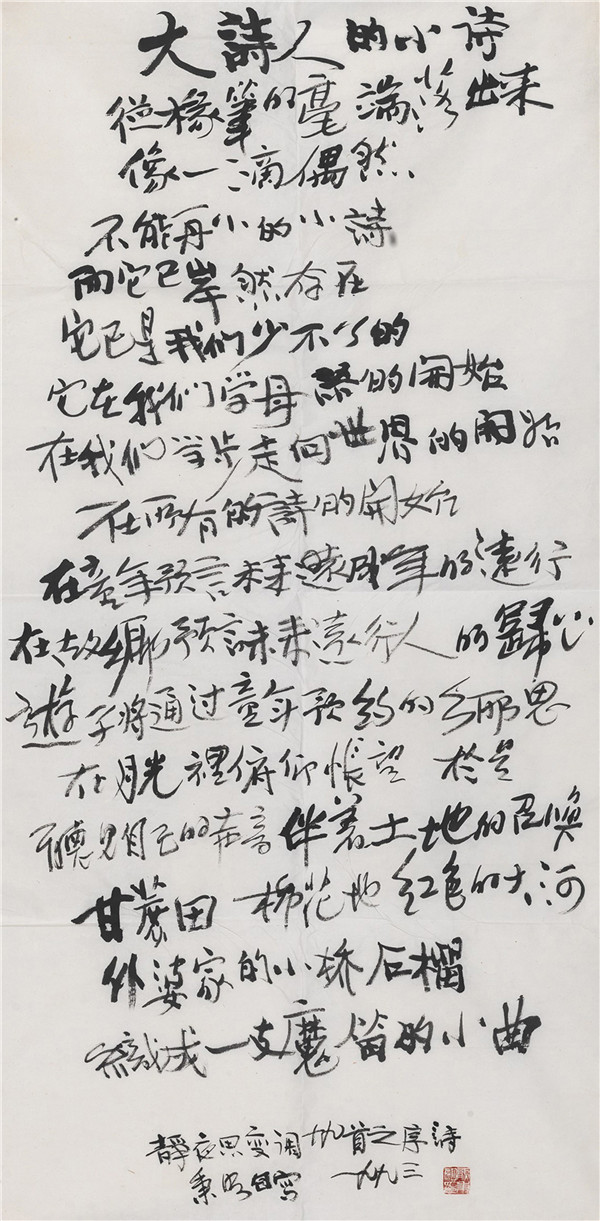 大詩人的小詩
從椽筆的毫端落出来
像一滴偶然
不能再小的小詩
而它已岸然存在
它已是我们少不了的
它在我们学母語的開始
在我们学步走向世界的開始
在所有的詩的開始
在童年预言未来年的遠行
在故鄉预言未来遠行人的歸心
遊子将通过童年预约的鄉思
在月光裡俯仰怅望 於是
聽見自己的音伴着土地的召唤
甘蔗田 棉花地 红色的大河
外婆家的小桥石榴
織成一支魔笛的小曲
靜夜思变调首之序詩
秉明自寫